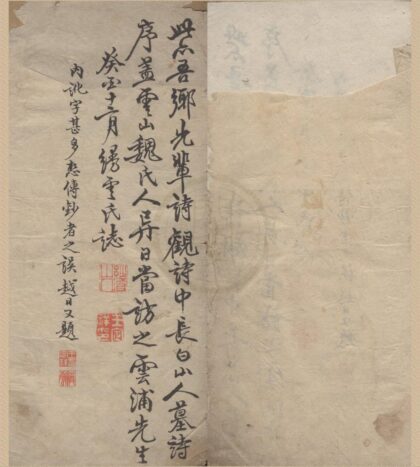 此亦吾鄉先輩詩觀詩中長白山人墓詩
序蓋雲山魏氏人異日當訪之雲浦先生
癸丑十二月縵雲氏誌
內訛字甚多悉傳鈔者之誤越日又題